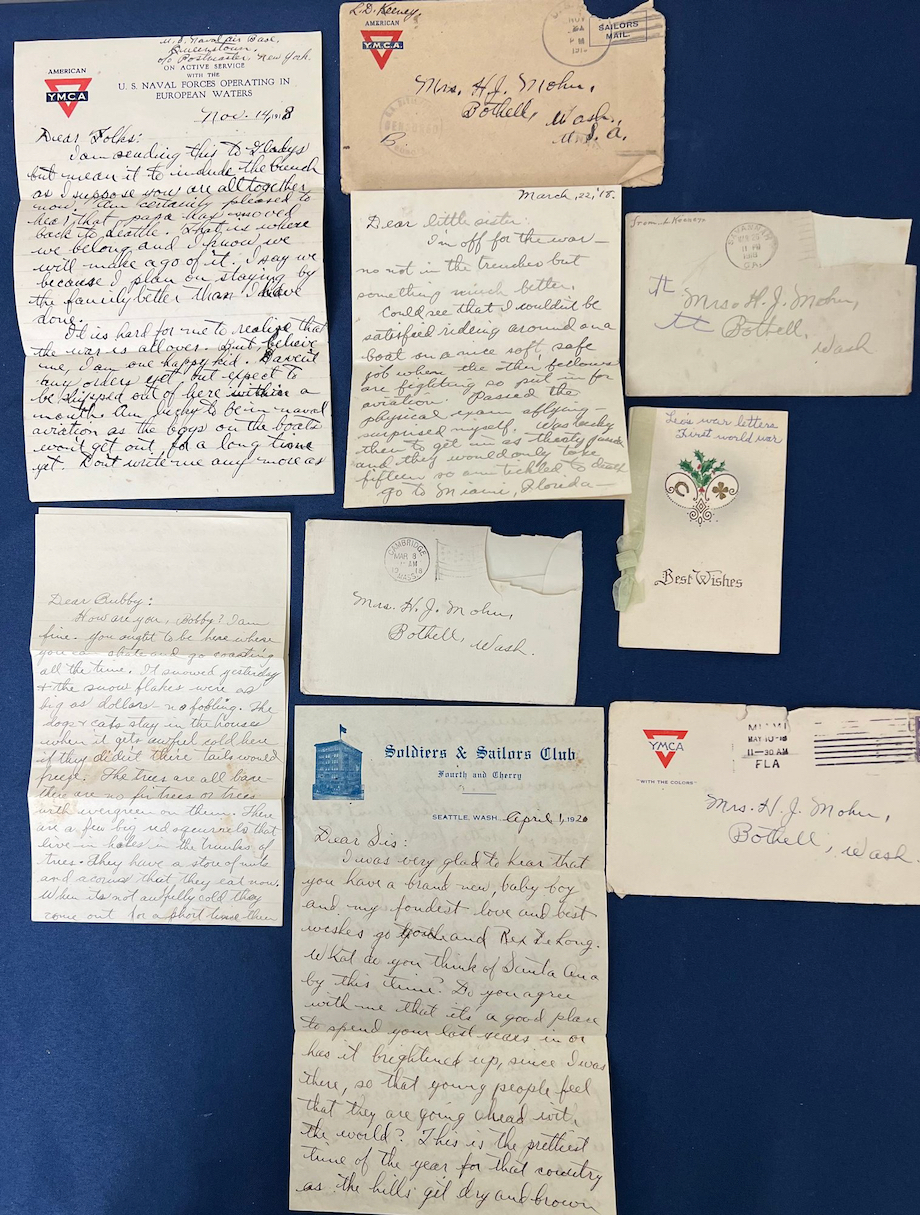 U.S. Naval Air Base,
Queenstown,
c/o Postmaster, New York.
AMERICAN
YMCA
ON ACTIVE SERVICE
WITH THE
U. S. NAVAL FORCES OPERATING IN
EUROPEAN WATERS
Nov. 14, 1918
Dear Folks:
I am sending this to Gladys
but mean it to include the bunch
as I suppose you are all together
now. Am certainly pleased to
hear that papa has moved
back to Seattle. That is where
we belong and I know we
will make a go of it. I say we
because I plan on staying by
the family better than I have
done.
It is hard for me to realize that
the war is all over. But, believe
me, I am one happy kid. Haven't
any orders yet, but expect to
be shipped out of here within a
month. Am lucky to be in naval
aviation as the boys on the boats
won't get out for a long time
yet. Don't write me any more as
L. D. Keeney.
AMERICAN
Y.M.C.A.
SAILORS
MAIL.
Mrs. H. J. Mohn,
Bothell, Wash.,
U.S.A.
March, 22, '18.
Dear little sister:
I'm off for the war—
no not in the trenches but
something much better.
Could see that I wouldn't be
satisfied riding around on a
boat on a nice soft, safe
job when the other fellows
are fighting so put in for
aviation. Passed the
physical exam aflying—
surprised myself. Was lucky
then to get in as thirty
and they would only take
fifteen so am tickled to death
go to Miami, Florida—
from L. Keeney
SAVANNAH
GA.
Mrs. H. J. Mohn,
Bothell,
Wash
Leo's war letters
First world war
Best Wishes
Dear Bubby:
How are you, Bobby? I am
fine. You ought to be here where
you can skate and go coasting
all the time. It snowed yesterday
& the snow flakes were as
big as dollars no fooling. The
dogs & cats stay in the houses
when it gets awful cold here
if they didn't there tails would
freeze. The trees are all bare
there are no fir trees or trees
with evergreen on them. There
are a few big red squirrels that
live in holes in the trunks of
trees. They have a store of nuts
and acorns that they eat now.
When its not awfully cold they
come out for a short time then
CAMBRIDGE
MAR 8
AM
1918
MASS.
Mrs. H. J. Mohn,
Bothell,
Wash.
Soldiers & Sailors Club
Fourth and Cherry
SEATTLE, WASH. April 1, 1920
Dear Sis:
I was very glad to hear that
you have a brand new, baby boy
and my fondest love and best
wishes go to you and Rex DeLong.
What do you think of Santa Ana
by this time? Do you agree
with me that its a good place
to spend your last years in or
has it brightened up, since I was
there, so that young people feel
that they are going ahead with
the world? This is the prettiest
time of the year for that country
as the hills git dry and brown
YMCA
"WITH THE COLORS"
MIAMI
MAY 10-18
11-30 AM
FLA
Mrs. H. J. Mohn,
Bothell, Wash.